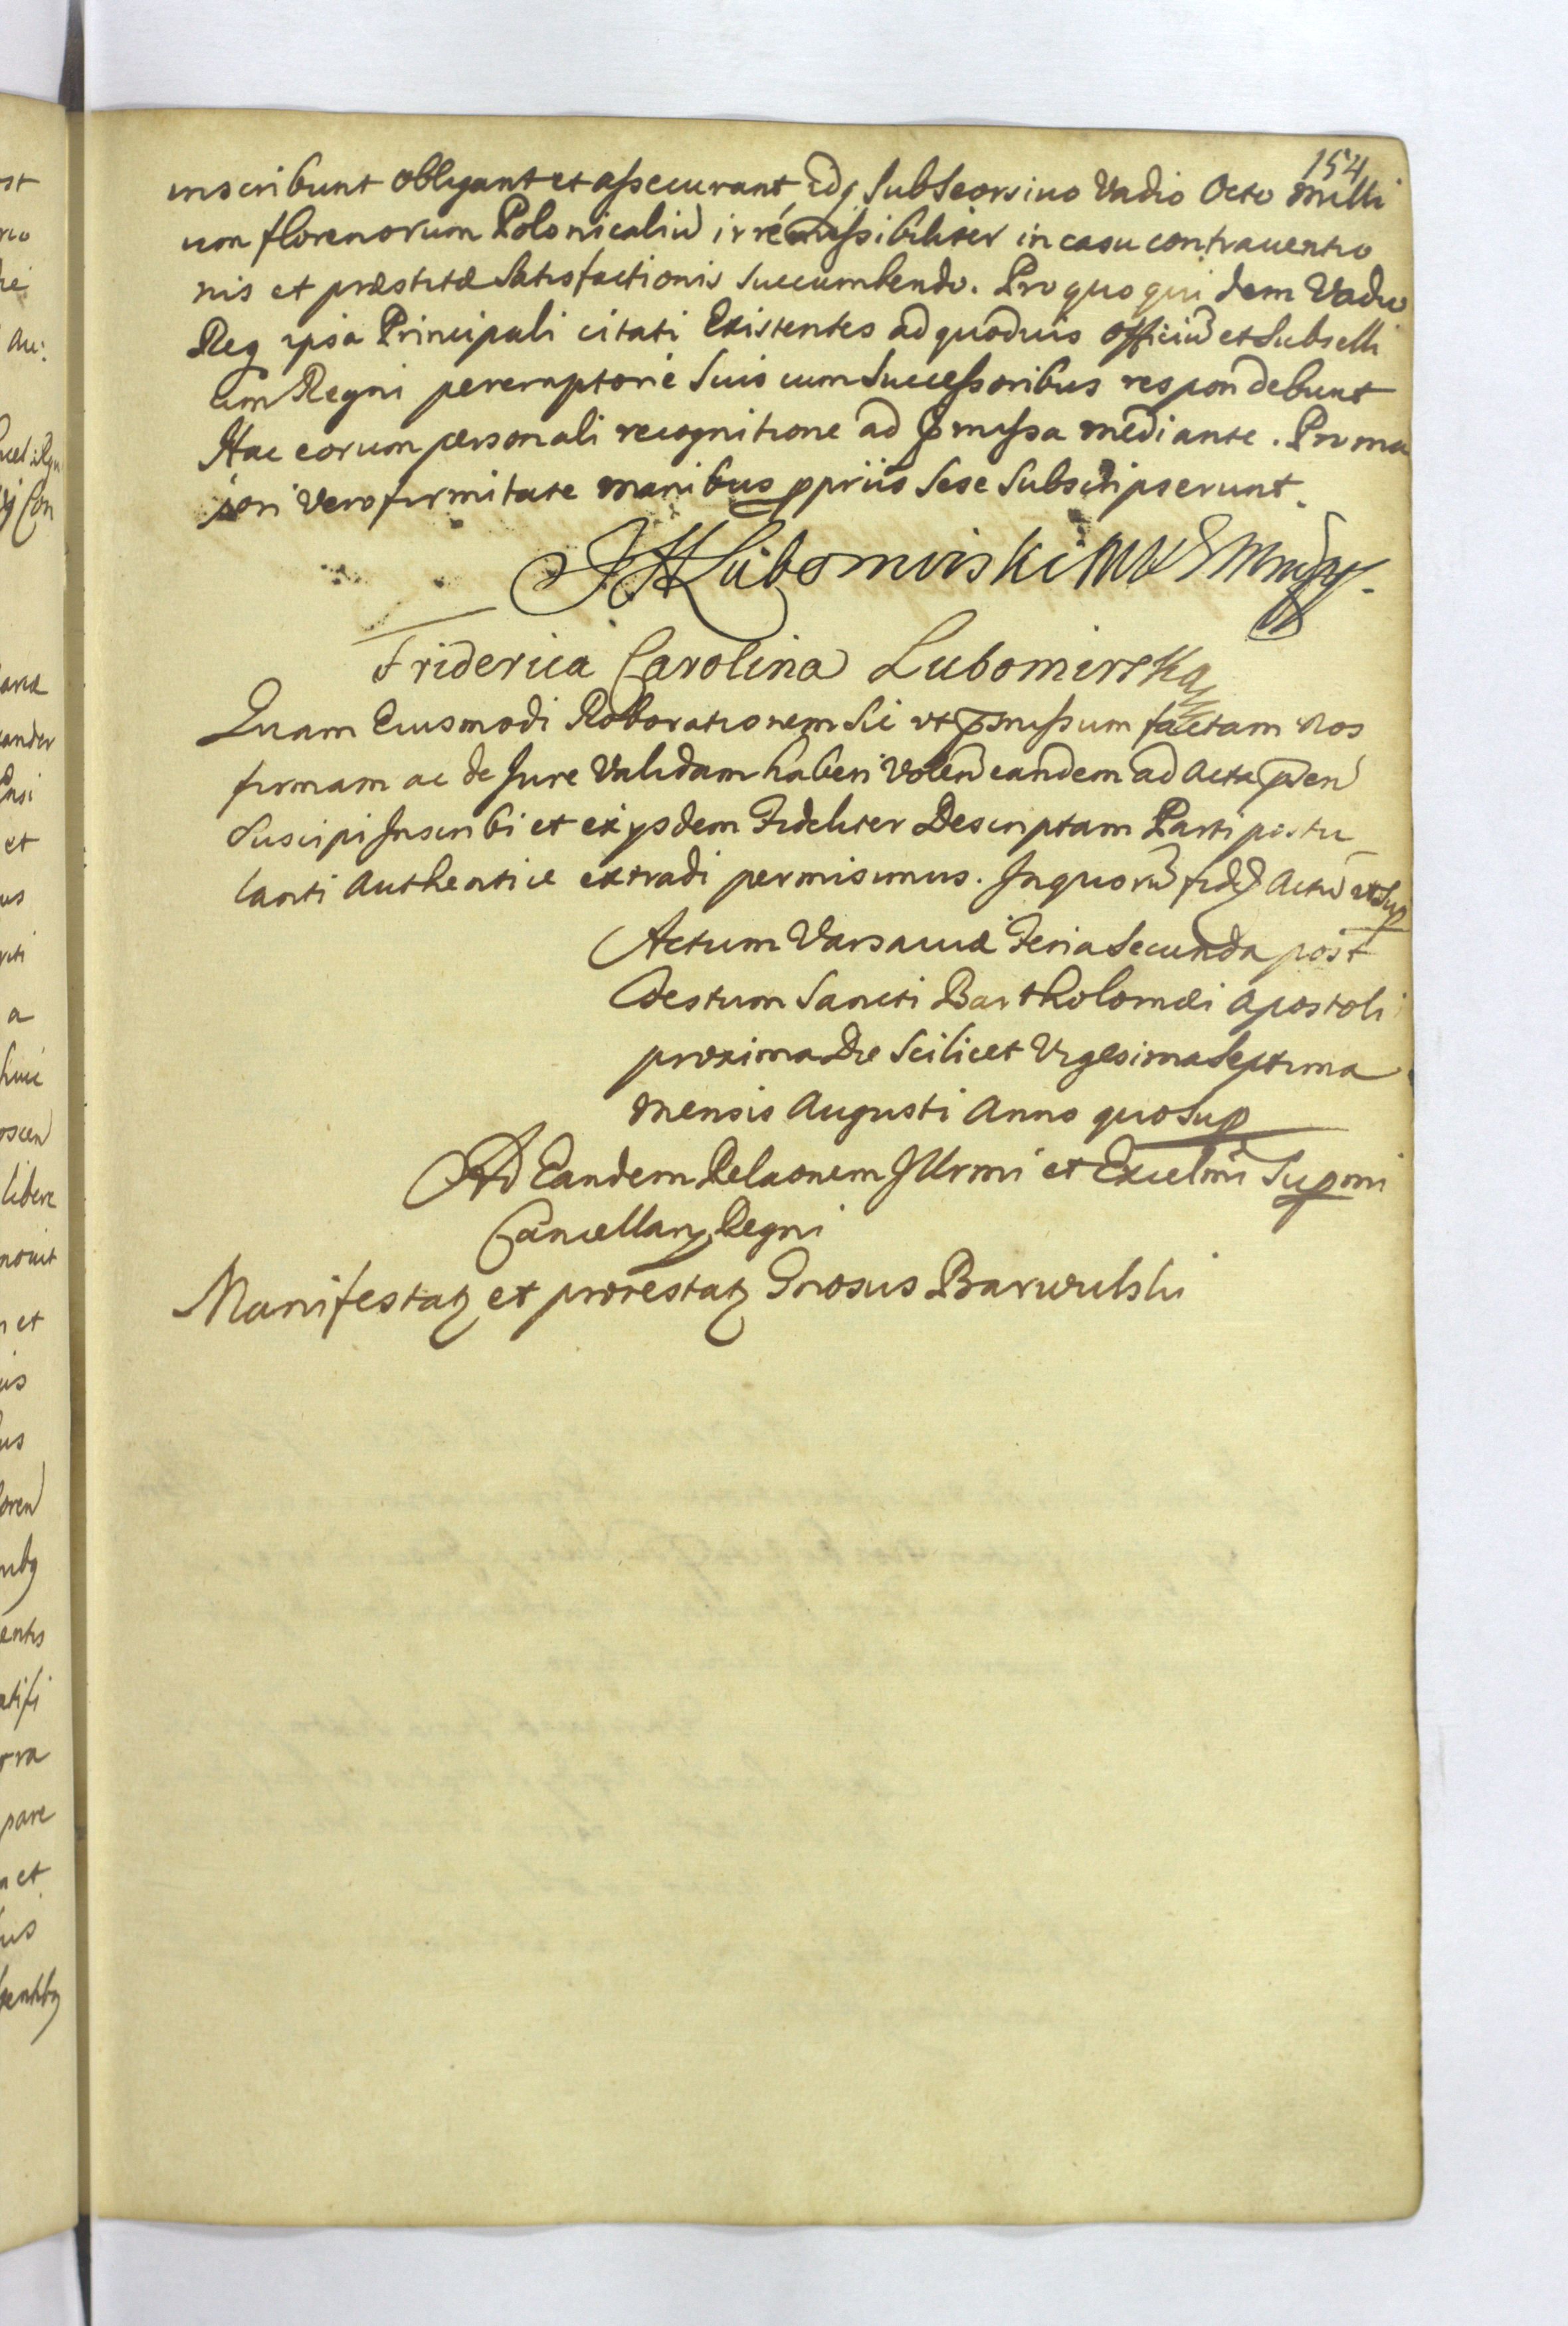 154
inscribunt obligant et assecurant, idq subseorsivo Vadio Octo milli
um florenorum Polonicaliū irrémissibiliter in casu contrauentio
nis et præstitæ satisfactionis succumbendo. Pro quo qui dem Vadio
Req ipsa Principali citati Existentes ad quoduis officiū et Subselli
um Regni peremptorie suis cum successoribus respondebunt
Hac eorum personali recognitione ad p̄missa mediante. Pro ma
iori vero firmitate manibus ppriis sese subscripserunt.
Lubomirski
Friderica Carolina Lubomirska
Quam Eiusmodi Roborationem sic vt p̄missum factam nos
firmam ac de Jure Validam haberi Volen eandem ad acta p̄en
suscipi Inscribi et ex ijsdem Fideliter Descriptam Parti postu
lanti Authentice extradi permisimus. In quorū fidē Actū vt sup
Actum Varsauiæ Feria secunda post
Festum Sancti Bartholomæi Apostoli
proxima Die scilicet Vigesima Septima
mensis Augusti Anno quo sup
Ad Eandem Relaonem Illrmi et Excelmi Supmi
Cancellarij Regni
Manifestatq et protestatq Gnosus Barwulski